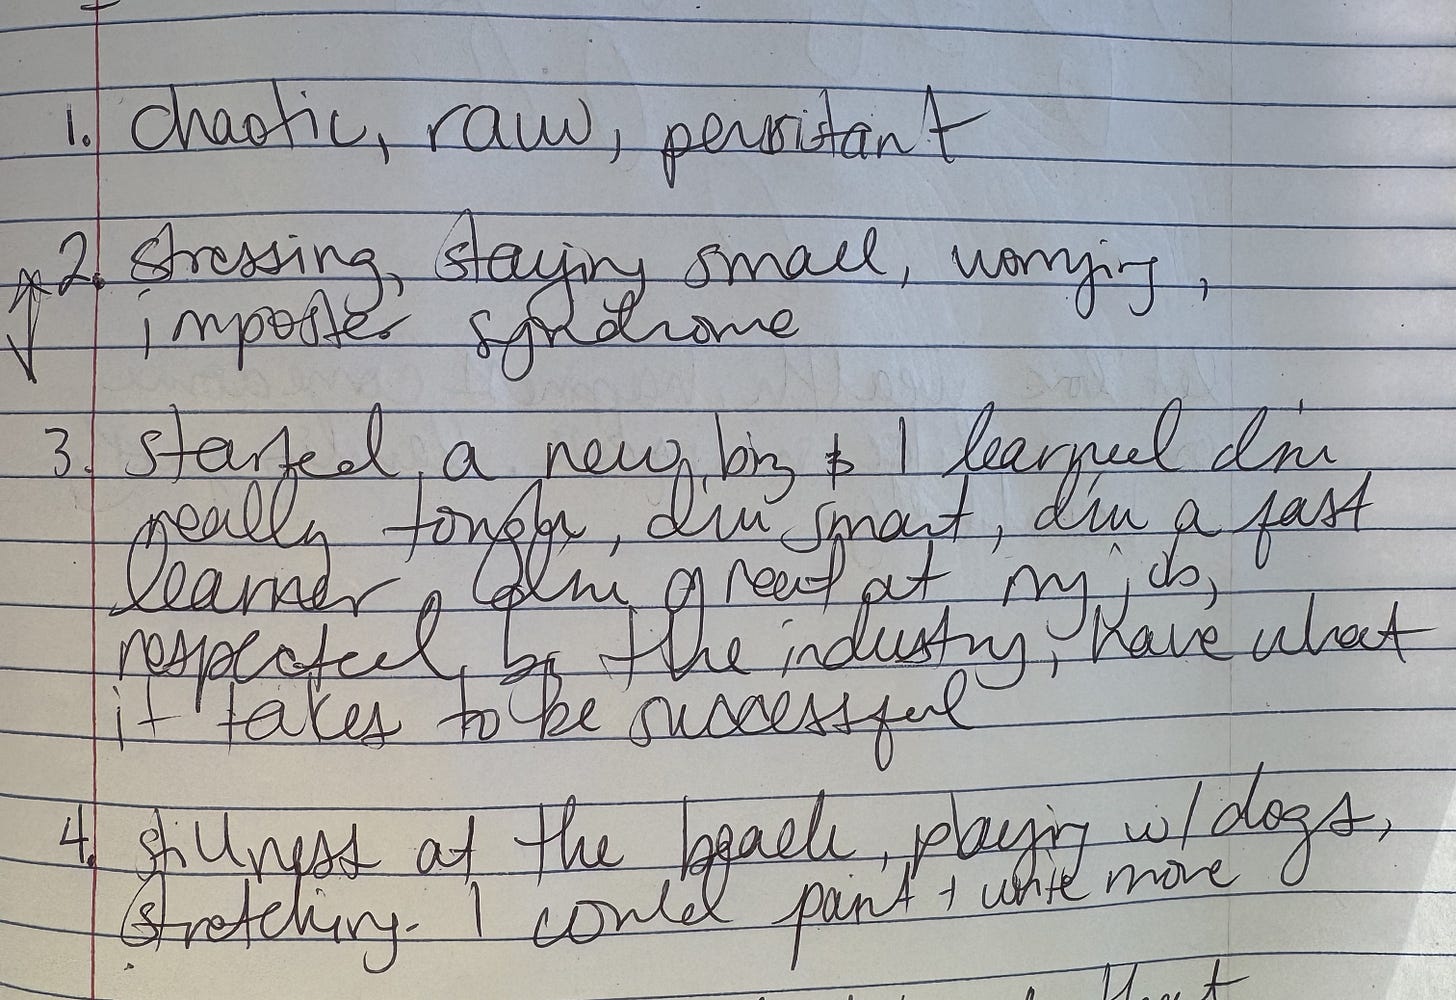 1. chaotic, raw, persistant
2. stressing, staying small, worrying,
imposter syndrome
3. started a new biz & I learned I'm
really tough, I'm smart, I'm a fast
learner, I'm great at my job,
respected by the industry, have what
it takes to be successful
4. stillness at the beach, playing w/ dogs,
stretching. I could paint + write more